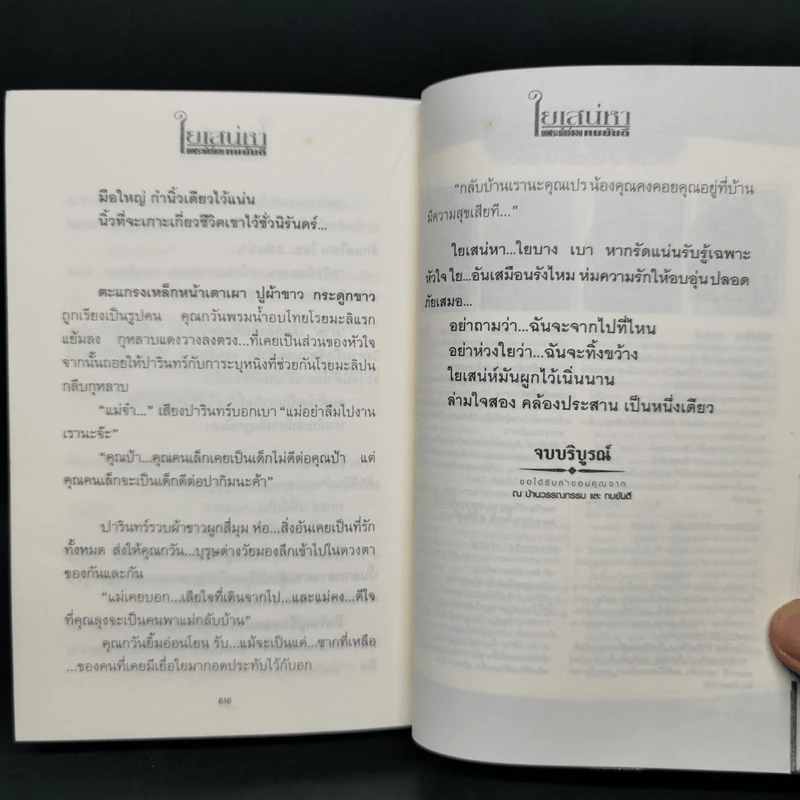 ใยเสน่หา
มือใหญ่ กำนิ้วเดียวไว้แน่น
นิ้วที่จะเกาะเกี่ยวชีวิตเขาไว้ชั่วนิรันดร์...
ตะแกรงเหล็กหน้าเตาเผา ปูผ้าขาว กระดูกขาว
ถูกเรียงเป็นรูปคน คุณกวันพรมน้ำอบไทยโรยมะลิแรก
แย้มลง กุหลาบแดงวางลงตรง...ที่เคยเป็นส่วนของหัวใจ
จากนั้นถอยให้ปารินทร์กับการะบุหนิงที่ช่วยกันโรยมะลิปน
กลีบกุหลาบ
“แม่จ๋า...” เสียงปารินทร์บอกเบา “แม่อย่าลืมไปงาน
เรานะจ๊ะ”
“คุณป้า...คุณคนเล็กเคยเป็นเด็กไม่ดีต่อคุณป้า แต่
คุณคนเล็กจะเป็นเด็กดีต่อปากิมนะค้า”
ปารินทร์รวบผ้าขาวผูกสี่มุม ห่อ...สิ่งอันเคยเป็นที่รัก
ทั้งหมด ส่งให้คุณกวัน...บุรุษต่างวัยมองลึกเข้าไปในดวงตา
ของกันและกัน
“แม่เคยบอก...เสียใจที่เดินจากไป...และแม่คง...ดีใจ
ที่คุณลุงจะเป็นคนพาแม่กลับบ้าน”
คุณกวันยิ้มอ่อนโยน รับ...แม้จะเป็นแค่...ซากที่เหลือ
...ของคนที่เคยมีเยื่อใยมากอดประทับไว้กับอก
ใยเสน่หา
“กลับบ้านเรานะคุณเปร น้องคุณคงคอยคุณอยู่ที่บ้าน
มีความสุขเสียที...”
ใยเสน่หา...ใยบาง เบา หากรัดแน่นรับรู้เฉพาะ
หัวใจ ใย...อันเสมือนรังไหม ห่มความรักให้อบอุ่น ปลอด
ภัยเสมอ...
อย่าถามว่า...ฉันจะจากไปที่ไหน
อย่าห่วงใยว่า...ฉันจะทิ้งขว้าง
ใยเสน่ห์มันผูกไว้เนิ่นนาน
ล่ามใจสอง คล้องประสาน เป็นหนึ่งเดียว
จบบริบูรณ์
ขอได้รับคำขอบคุณจาก
ณ บ้านวรรณกรรม และ ทมยันตี